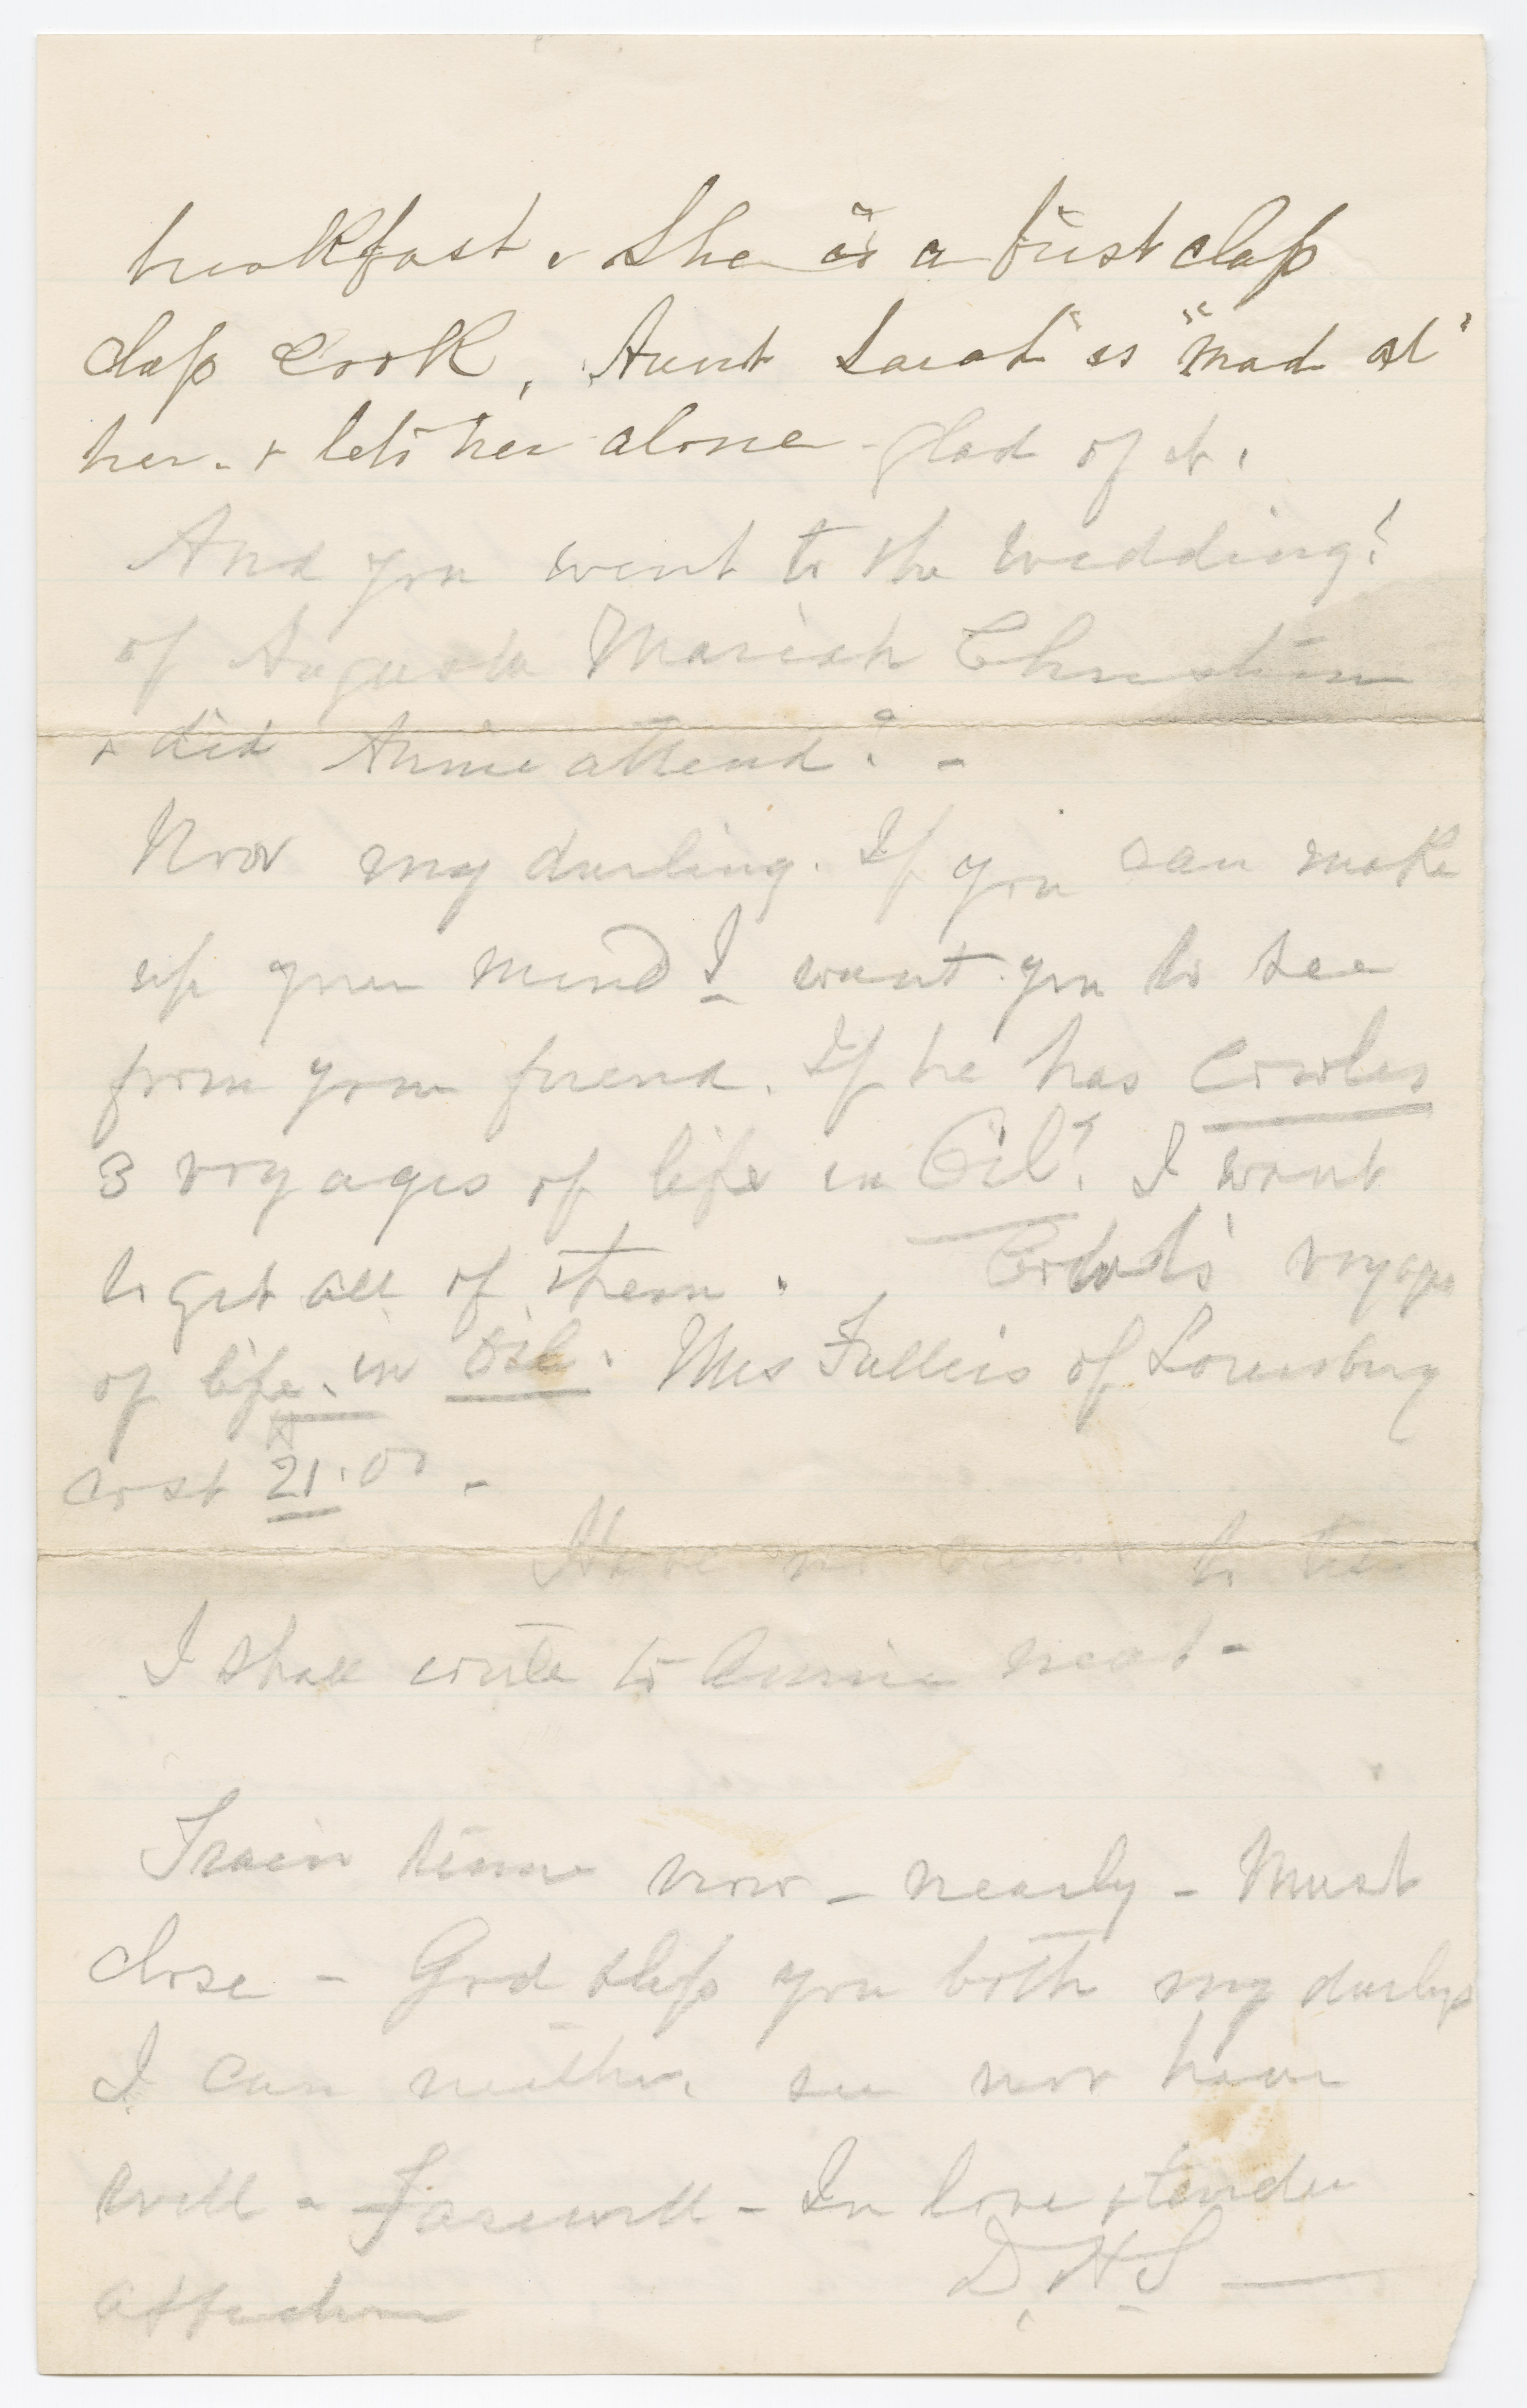 breakfast & She is a first class
class Cook, Aunt Sarah is "mad at"
her - & lets her alone - glad of it.
And you went to the wedding?
of Augusta Mariah Christian
& did Annie attend? -
Now my darling. If you can make
up your mind I want you to see
from your friend. If he has Cowles
3 voyages of life in Oil? I want
to get all of them. voyage
of life. in Oil. Mrs of
cost 21.00 -
Have no to
I shall write to Annie next -
Train time now - nearly - Must
close - God bless you both my darlings
I can neither see nor hear
well - Farewell - In love & tender
affection D. H. S -